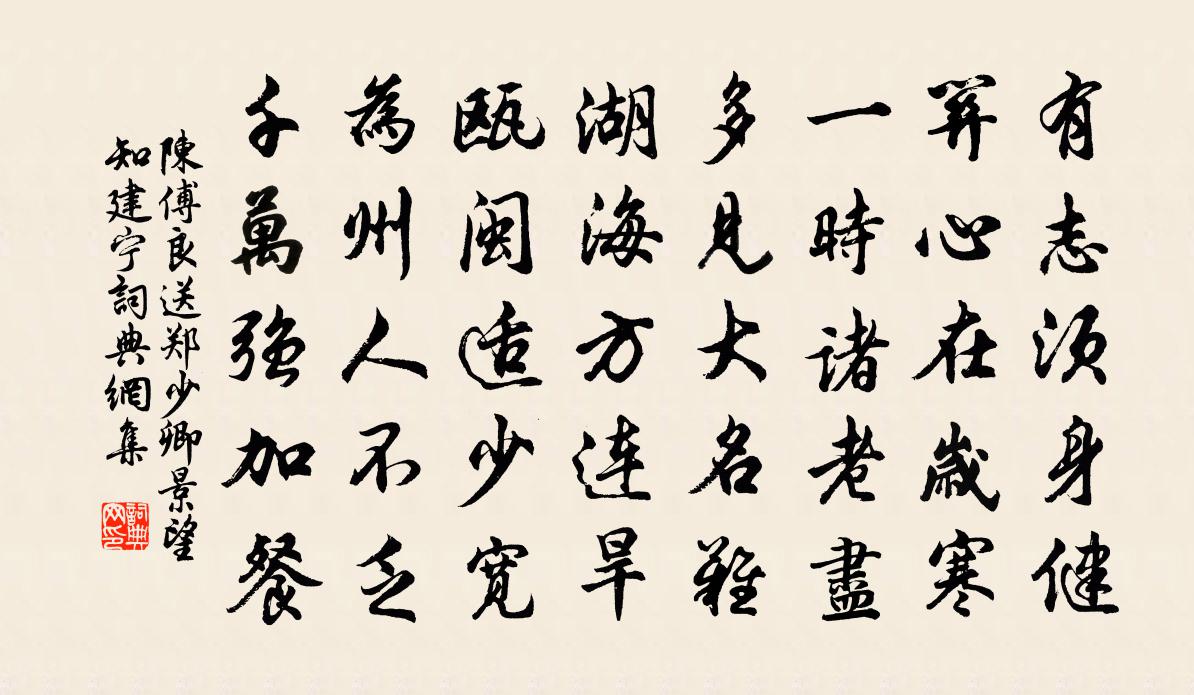 有志须身健
關心在歲寒
一時諸老盡
多見大名難
湖海方连旱
瓯闽适少宽
為州人不乏
千萬强加餐
陳傅良送郑少卿景望
知建宁詞典網集
詞典网印